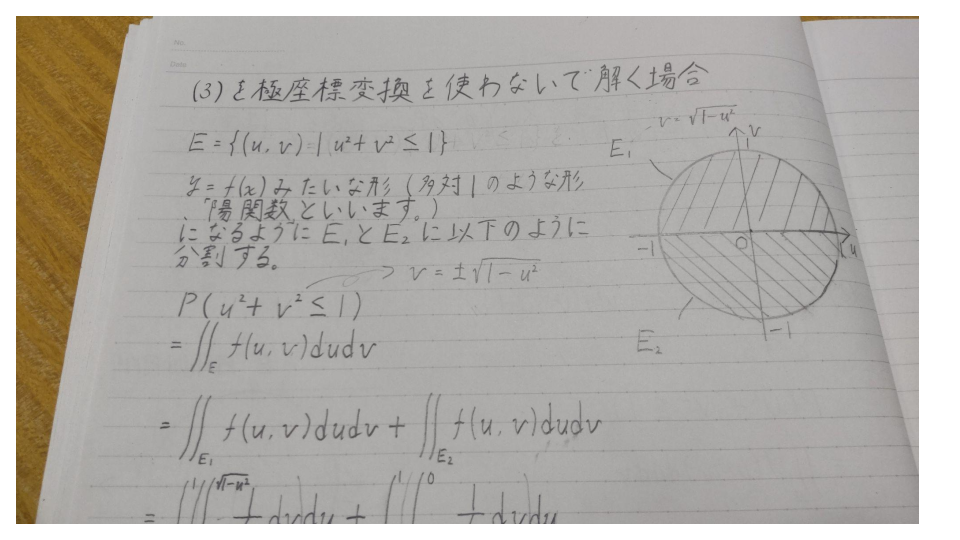 No.
Date
(3)を極座標変換を使わないで解く場合
E = {(u, v) | u² + v² ≤ 1}
y = f(x) みたいな形 (多対1のような形
、「陽関数といいます。)
になるように E₁ と E₂ に以下のように
分割する。
v = ±√(1-u²)
P(u² + v² ≤ 1)
= ∬_E f(u, v)dudv
= ∬_E₁ f(u, v)dudv + ∬_E₂ f(u, v)dudv
v = √(1-u²)
v
1
E₁
-1
O
1
u
-1
E₂